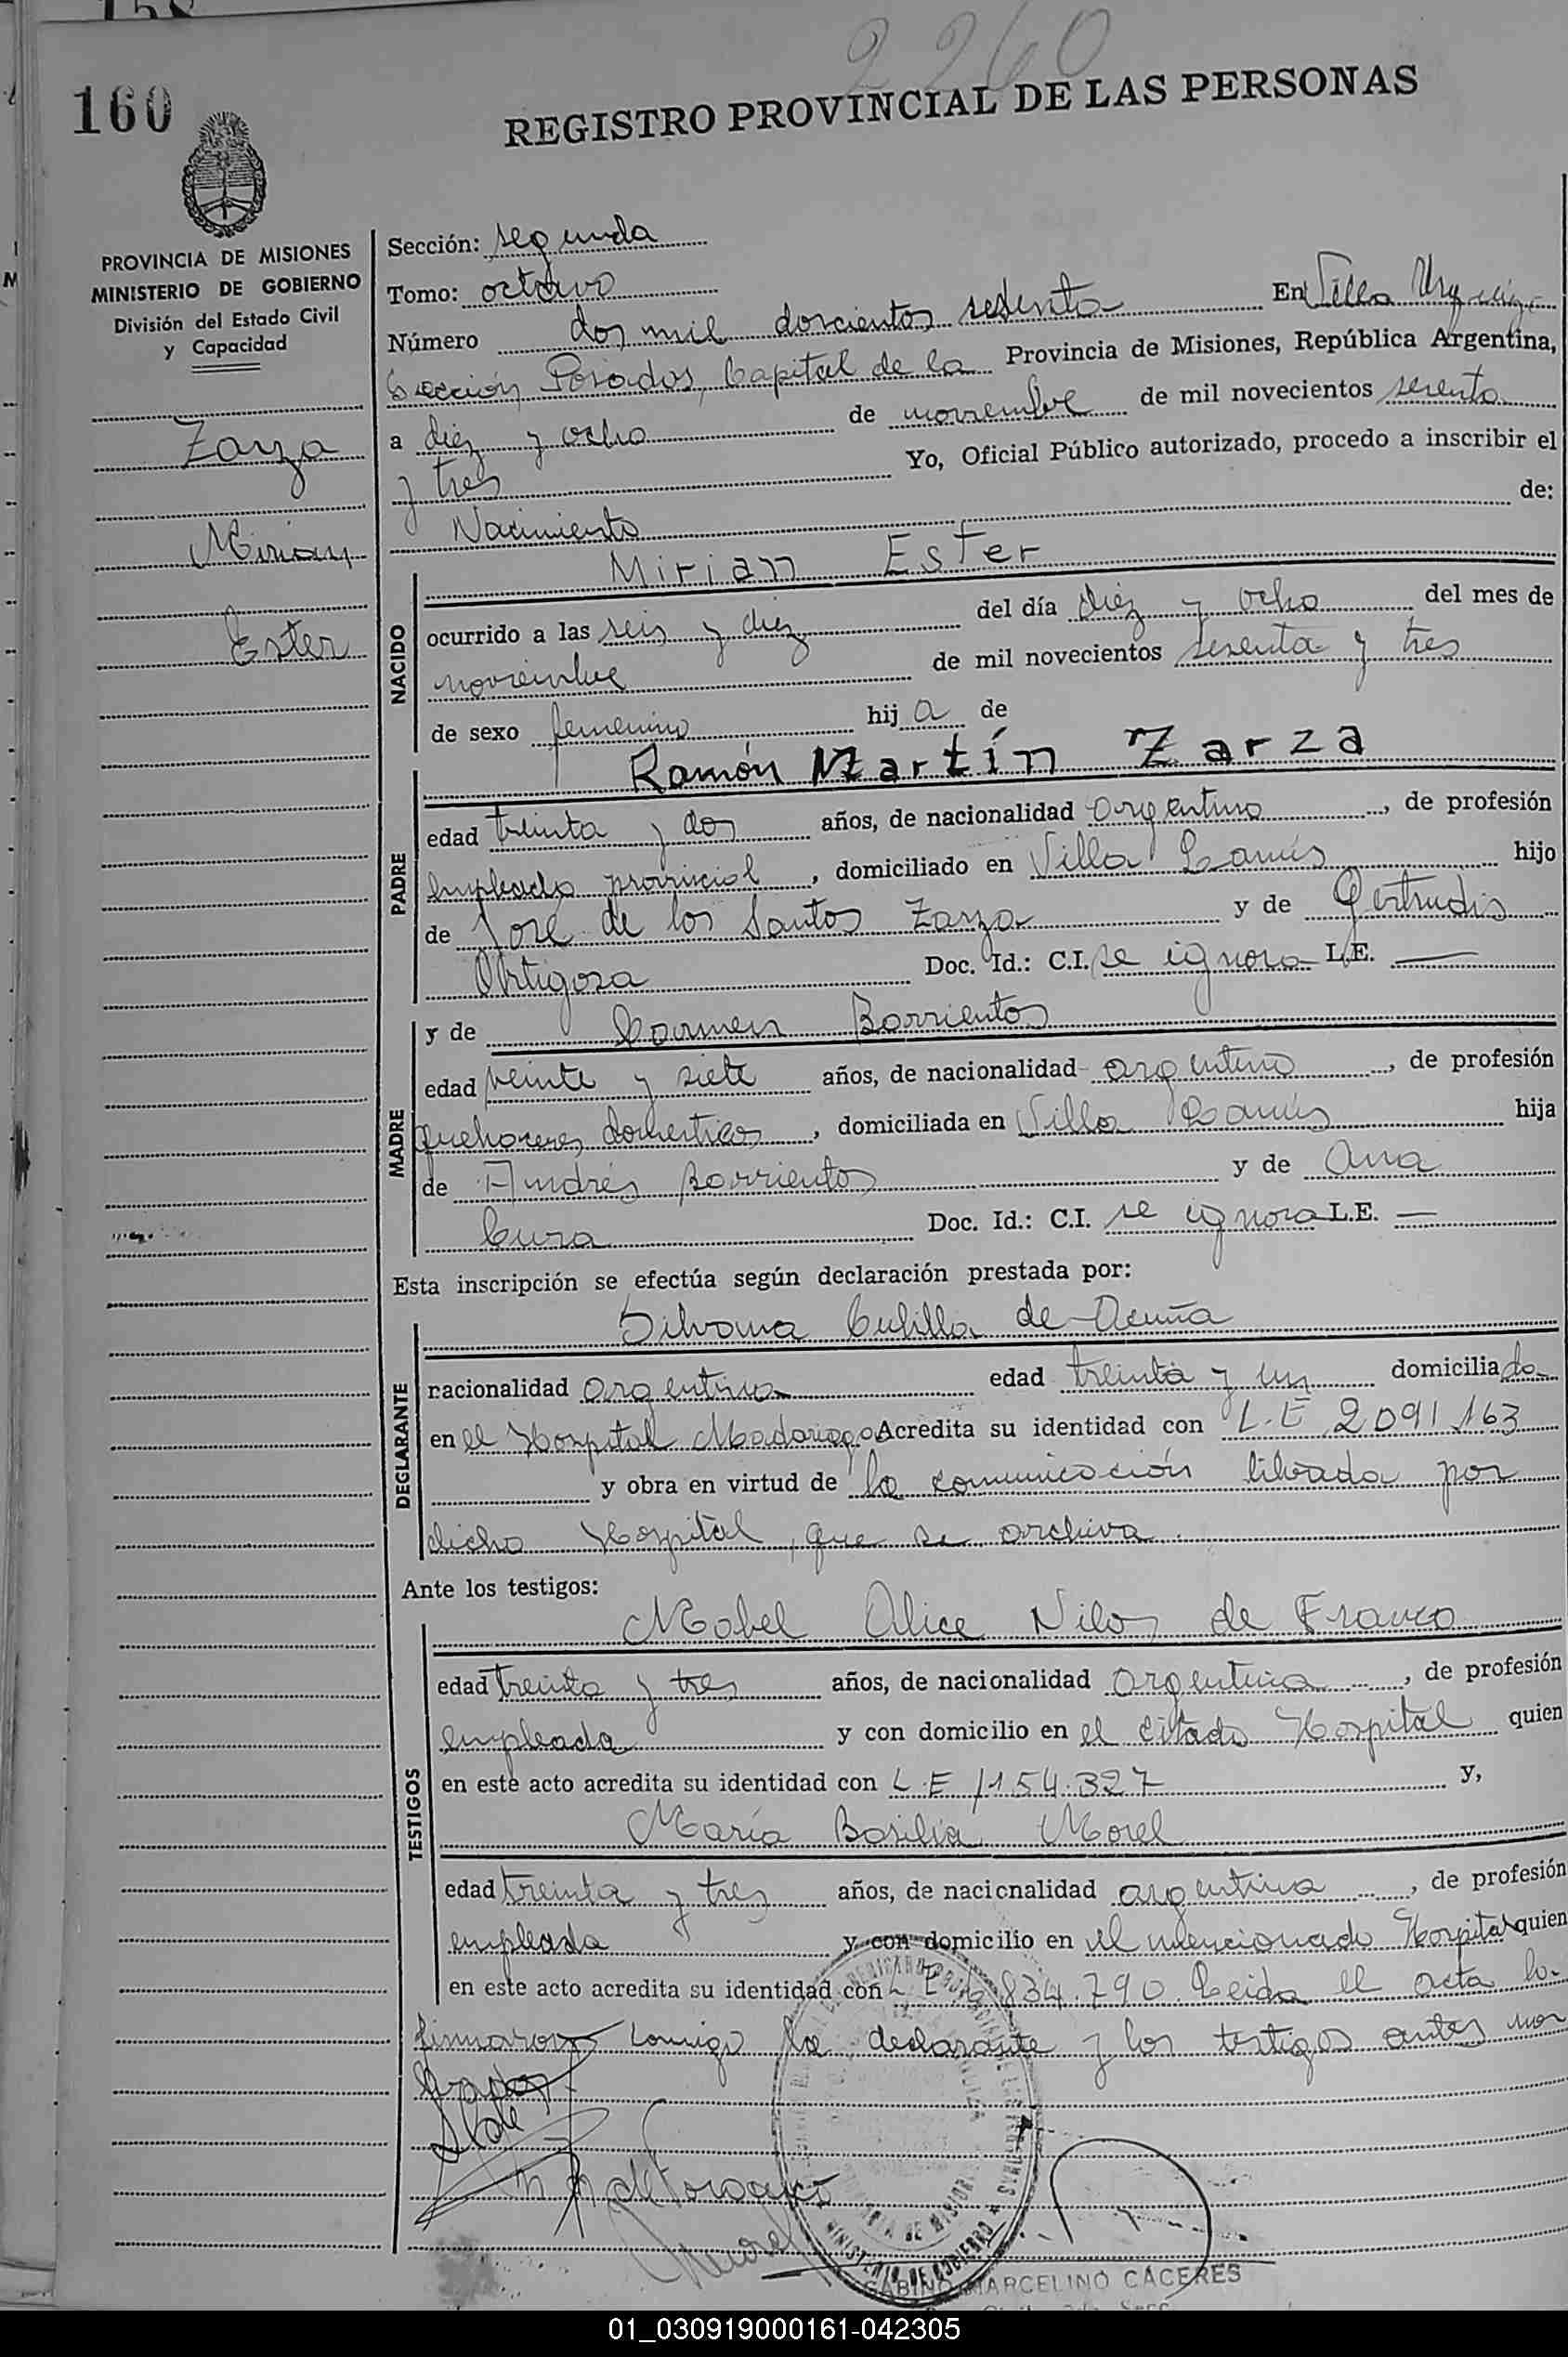 158
2260
160
REGISTRO PROVINCIAL DE LAS PERSONAS
PROVINCIA DE MISIONES
MINISTERIO DE GOBIERNO
División del Estado Civil
y Capacidad
Zarza
Mirian
Ester
Sección: segunda
Tomo: octavo
Número dos mil doscientos sesenta En Villa Urquiza
Sección Posadas, Capital de la Provincia de Misiones, República Argentina,
a diez y ocho de noviembre de mil novecientos sesenta
y tres Yo, Oficial Público autorizado, procedo a inscribir el
Nacimiento de:
NACIDO
Mirian Ester
ocurrido a las seis y diez del día diez y ocho del mes de
noviembre de mil novecientos sesenta y tres
de sexo femenino hija de
PADRE
Ramón Martín Zarza
edad treinta y dos años, de nacionalidad argentino, de profesión
empleado provincial, domiciliado en Villa Lanús hijo
de José de los Santos Zarza y de Gertrudis
Ortigosa Doc. Id.: C.I. se ignora L.E. —
MADRE
y de Carmen Barrientos
edad veinte y siete años, de nacionalidad argentina, de profesión
quehaceres domesticos, domiciliada en Villa Lanús hija
de Andrés Barrientos y de Ana
Cura Doc. Id.: C.I. se ignora L.E. —
Esta inscripción se efectúa según declaración prestada por:
DECLARANTE
Silvana de Acuña
nacionalidad argentina edad treinta y un domiciliada
en el Hospital Madariaga Acredita su identidad con L.E 2091.163
y obra en virtud de la comunicación librada por
dicho Hospital, que se archiva.
Ante los testigos:
TESTIGOS
Mabel Alice de Franco
edad treinta y tres años, de nacionalidad argentina, de profesión
empleada y con domicilio en el citado Hospital quien
en este acto acredita su identidad con L.E 1154.327 y,
María Basilia Morel
edad treinta y tres años, de nacionalidad argentina, de profesión
empleada y con domicilio en el mencionado Hospital quien
en este acto acredita su identidad con L.E 834.790. Leida el acta la
firmaron conmigo la declarante y los testigos antes nom
brados
Morel
MINISTERIO DE GOBIERNO
SABINO MARCELINO CÁCERES
01_030919000161-042305